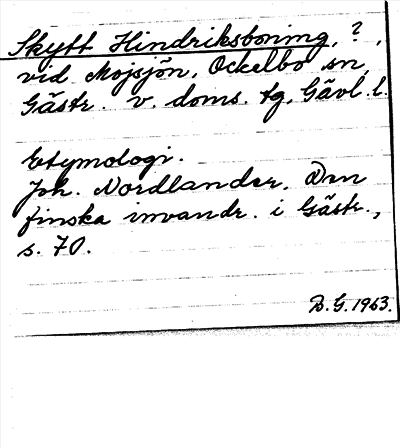 Skytt Hindriksboning, ?,
vid Mojsjön, Ockelbo sn,
Gästr. v. doms. tg, Gävl. l.
Etymologi.
Joh. Nordlander. Den
finska invandr. i Gästr.,
s. 70.
D. G. 1963.